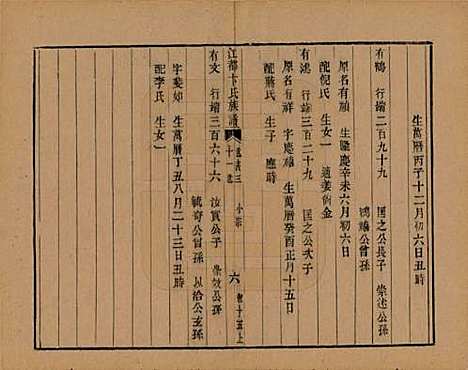 生萬曆丙子十二月初六日丑時
有鶴 行端二百九十九 匡之公長子 崇述公孫
鴻端公曾孫
原名有顏 生隆慶辛未六月初六日
配倪氏 生女一 適姜例金
有鴻 行端三百二十九 匡之公次子
原名有祥 字應禧 生萬曆癸酉正月十五日
配蔣氏 生子 應時
江都卞氏族譜
十一世 小宗 六
有文 行端三百六十六 汝賓公子 崇效公孫
毓奇公曾孫 以洽公玄孫
字斐如 生萬曆丁丑八月二十三日丑時
配李氏 生女一